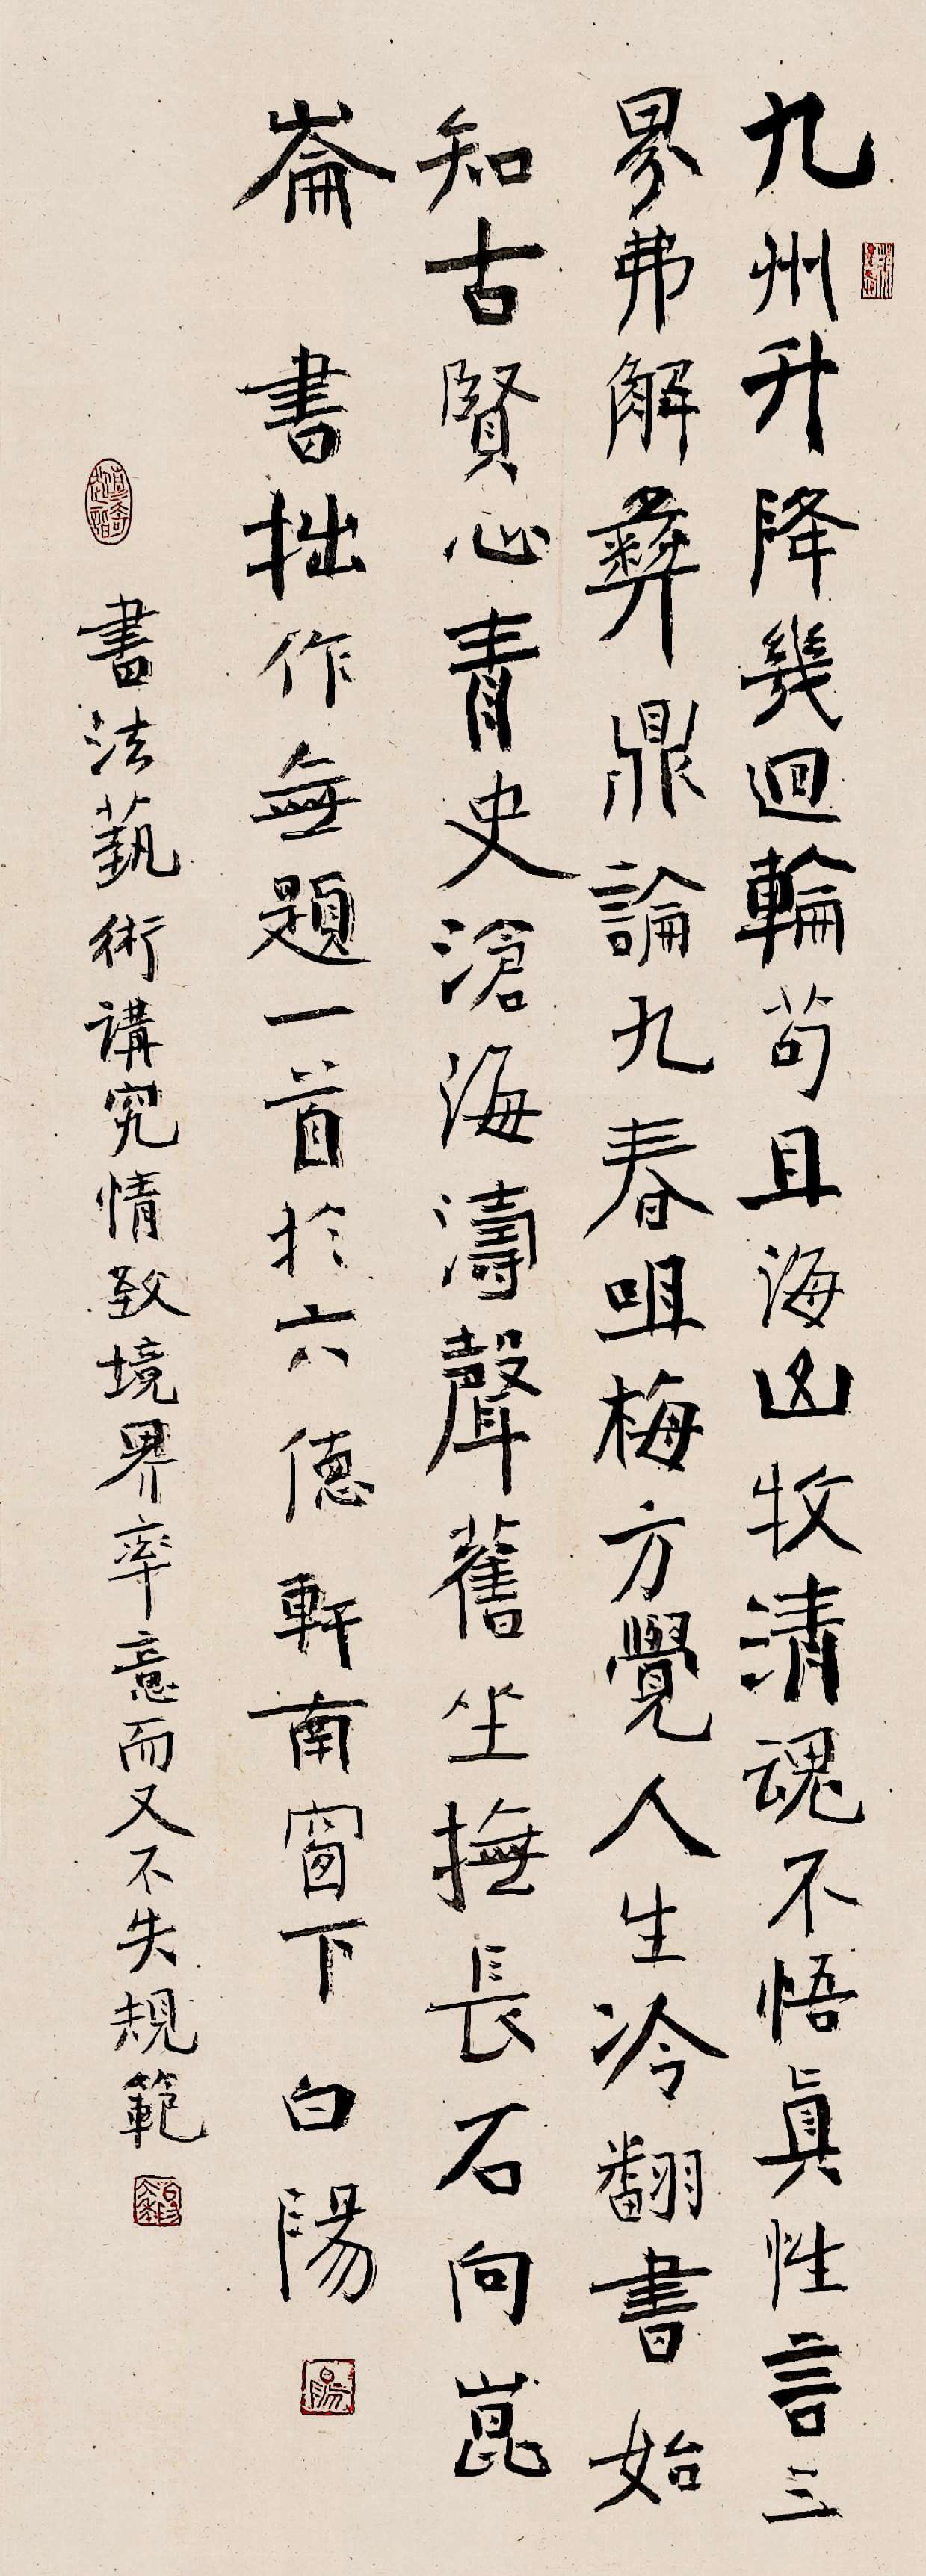 九州升降幾迴輪苟且海凶牧清魂不悟真性言三
界弗解彝鼎論九春咀梅方覺人生冷翻書始
知古賢心青史滄海濤聲舊坐撫長石向崑
崙 書拙作無題一首於六德軒南窗下 白陽
書法藝術講究情致境界率意而又不失規範